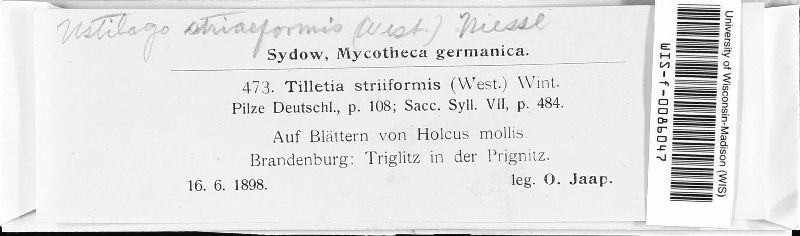 Ustilago striaeformis (West.) Niessl
Sydow, Mycotheca germanica.
473. Tilletia striiformis (West.) Wint.
Pilze Deutschl., p. 108; Sacc. Syll. VII, p. 484.
Auf Blättern von Holcus mollis.
Brandenburg: Triglitz in der Prignitz.
16. 6. 1898. leg. O. Jaap.
University of Wisconsin-Madison (WIS)
WIS-f-0086047